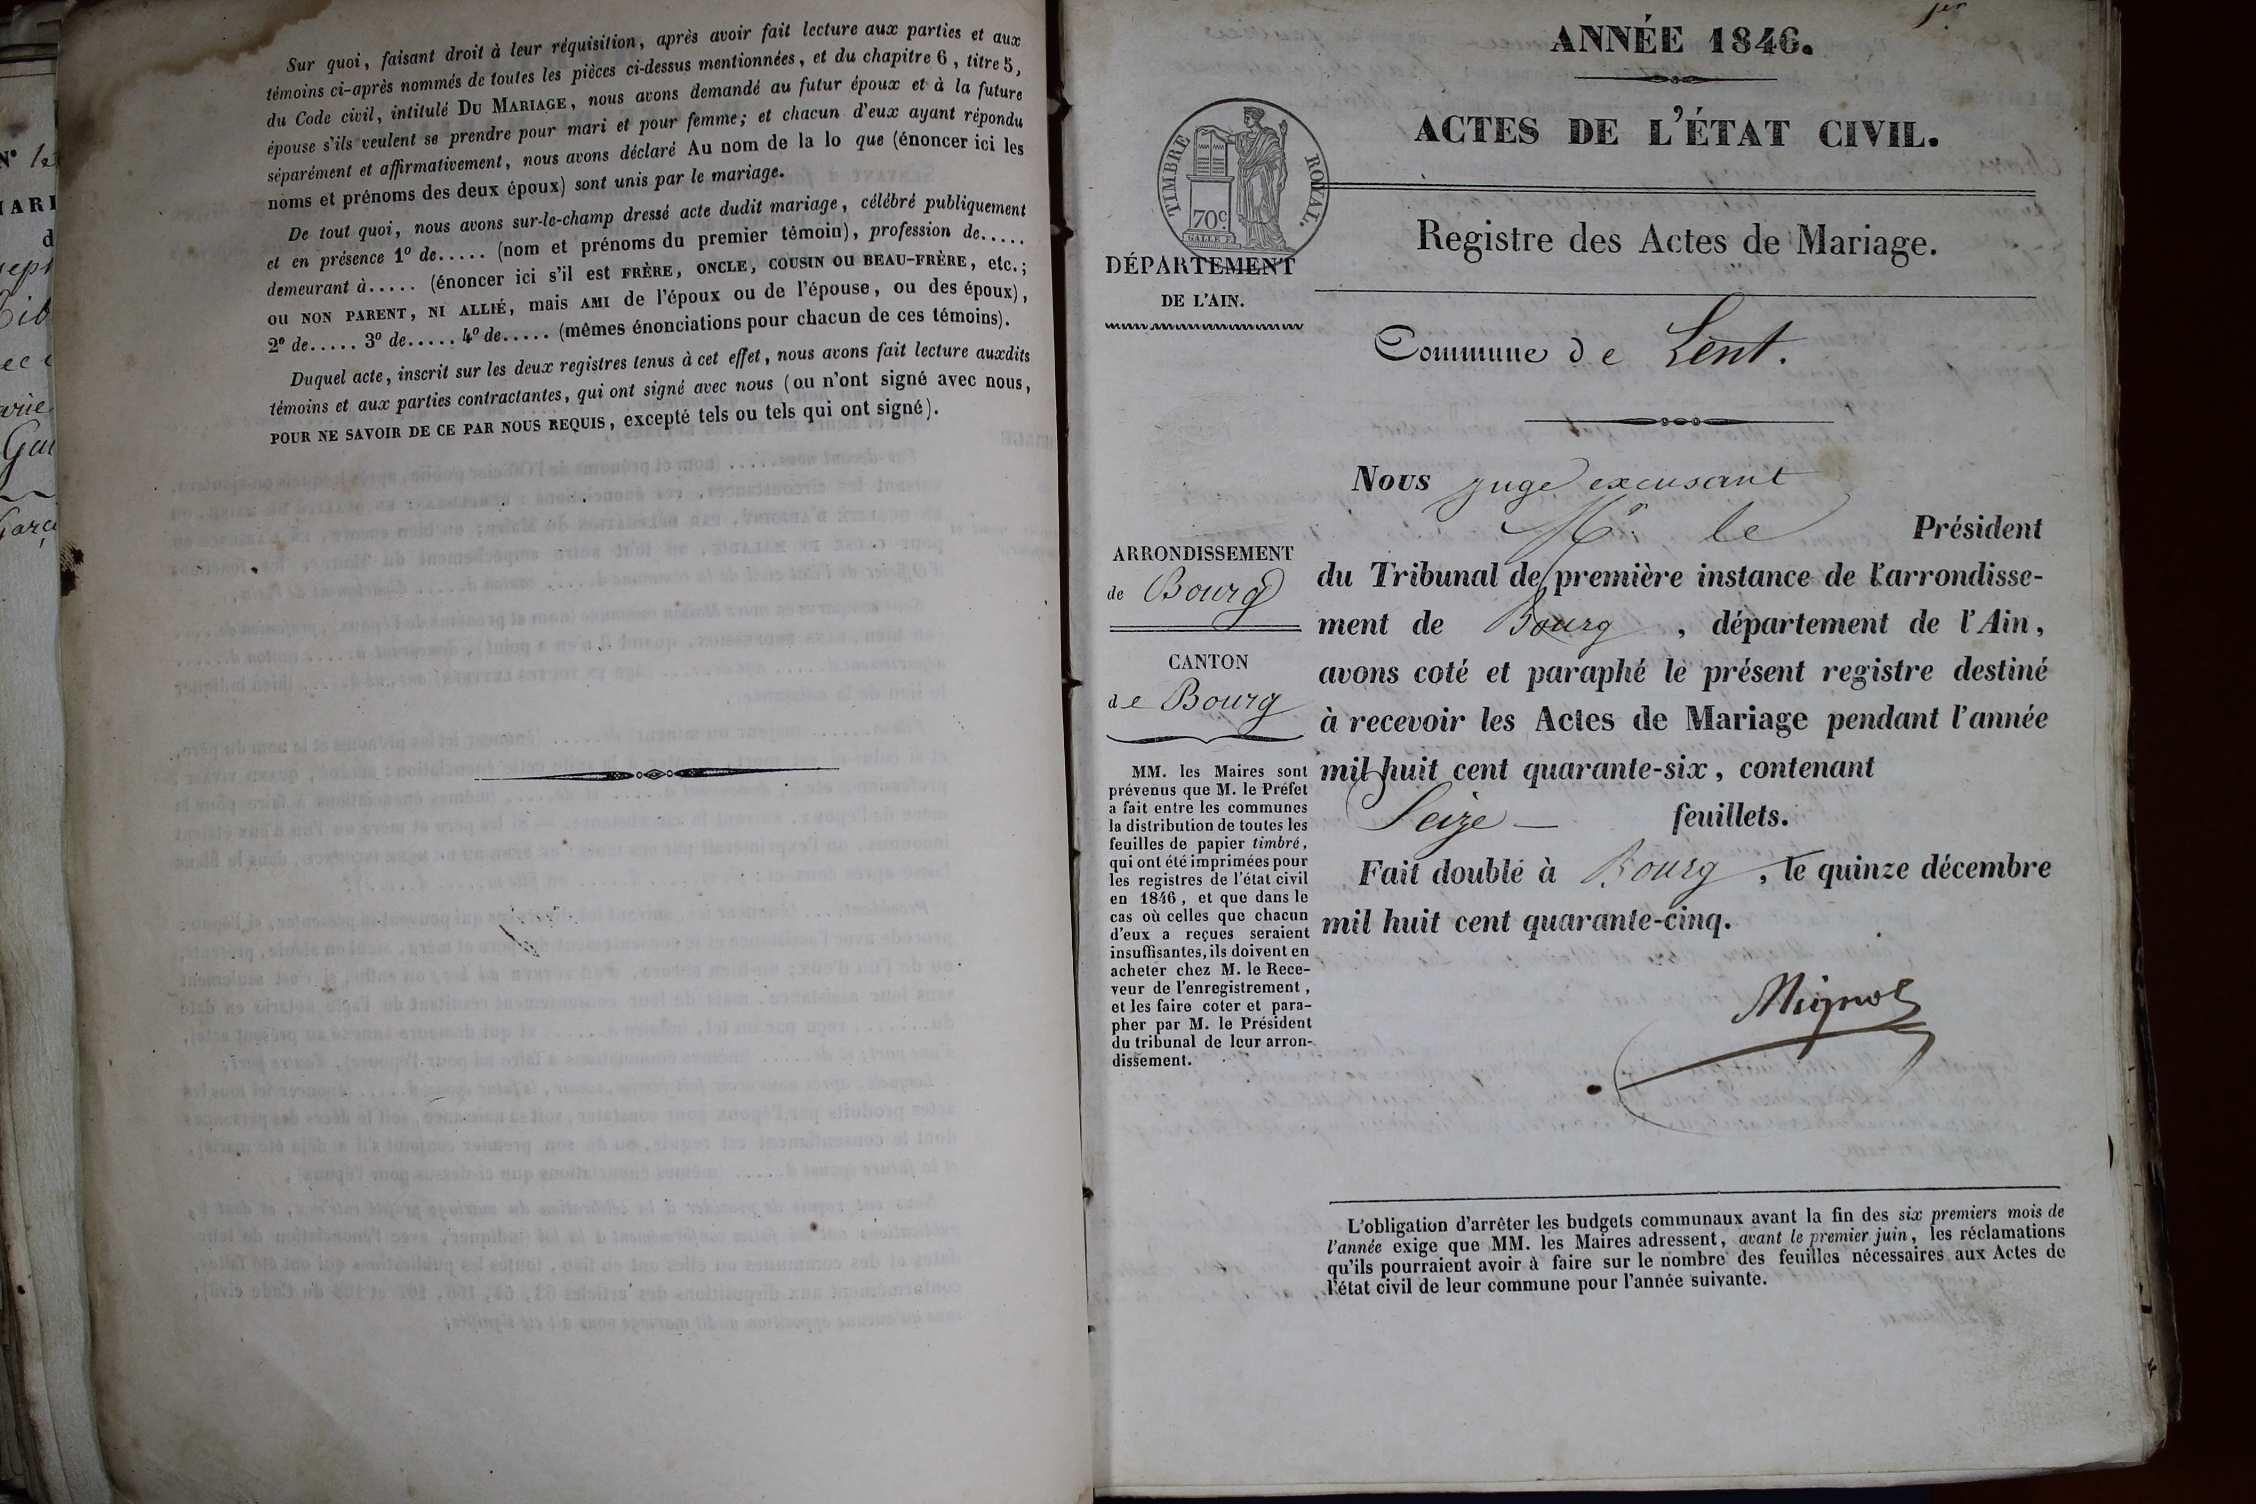 Sur quoi, faisant droit à leur réquisition, après avoir fait lecture aux parties et aux
témoins ci-après nommés de toutes les pièces ci-dessus mentionnées, et du chapitre 6, titre 5,
du Code civil, intitulé DU MARIAGE, nous avons demandé au futur époux et à la future
épouse s'ils veulent se prendre pour mari et pour femme; et chacun d'eux ayant répondu
séparément et affirmativement, nous avons déclaré Au nom de la lo que (énoncer ici les
noms et prénoms des deux époux) sont unis par le mariage.
De tout quoi, nous avons sur-le-champ dressé acte dudit mariage, célébré publiquement
et en présence 1º de..... (nom et prénoms du premier témoin), profession de.....
demeurant à..... (énoncer ici s'il est FRÈRE, ONCLE, COUSIN OU BEAU-FRÈRE, etc.;
ou NON PARENT, NI ALLIÉ, mais AMI de l'époux ou de l'épouse, ou des époux),
2º de..... 3º de..... 4º de..... (mêmes énonciations pour chacun de ces témoins).
Duquel acte, inscrit sur les deux registres tenus à cet effet, nous avons fait lecture auxdits
témoins et aux parties contractantes, qui ont signé avec nous (ou n'ont signé avec nous,
POUR NE SAVOIR DE CE PAR NOUS REQUIS, excepté tels ou tels qui ont signé).
1er
ANNÉE 1846.
ACTES DE L'ÉTAT CIVIL.
TIMBRE ROYAL.
70c
Registre des Actes de Mariage.
DÉPARTEMENT
DE L'AIN.
Commune de Lent.
Nous juge excusant
Mr. le Président
du Tribunal de première instance de l'arrondisse-
ment de Bourg, département de l'Ain,
avons coté et paraphé le présent registre destiné
à recevoir les Actes de Mariage pendant l'année
mil huit cent quarante-six, contenant
Seize — feuillets.
Fait double à Bourg, le quinze décembre
mil huit cent quarante-cinq.
Mignot
ARRONDISSEMENT
de Bourg
CANTON
de Bourg
MM. les Maires sont
prévenus que M. le Préfet
a fait entre les communes
la distribution de toutes les
feuilles de papier timbré,
qui ont été imprimées pour
les registres de l'état civil
en 1846, et que dans le
cas où celles que chacun
d'eux a reçues seraient
insuffisantes, ils doivent en
acheter chez M. le Rece-
veur de l'enregistrement,
et les faire coter et para-
pher par M. le Président
du tribunal de leur arron-
dissement.
L'obligation d'arrêter les budgets communaux avant la fin des six premiers mois de
l'année exige que MM. les Maires adressent, avant le premier juin, les réclamations
qu'ils pourraient avoir à faire sur le nombre des feuilles nécessaires aux Actes de
l'état civil de leur commune pour l'année suivante.